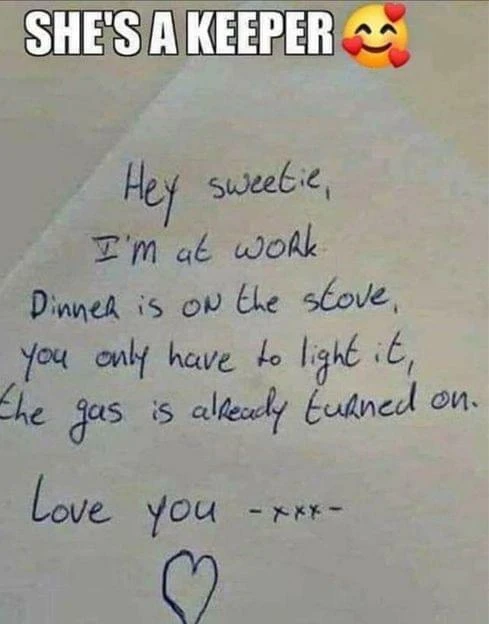 SHE'S A KEEPER
Hey sweetie,
I'm at work
Dinner is on the stove,
you only have to light it,
the gas is already turned on.
Love you -xxx-